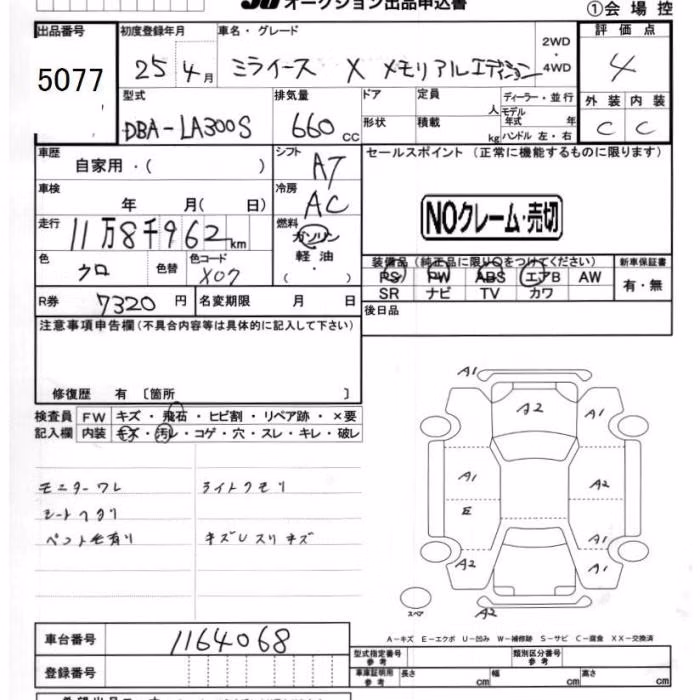 オークション出品申込書
①会場控
出品番号 初度登録年月 車名・グレード 評価点
5077 25 4月 ミライース X メモリアルエディション 2WD・4WD 4
型式 排気量 ドア 定員 人 ディーラー・並行 外装 内装
DBA-LA300S 660cc 形状 積載 kg モデル年式 年 ハンドル 左・右 C C
車歴 自家用・( ) シフト AT セールスポイント (正常に機能するものに限ります)
車検 年 月( 日) 冷房 AC
NOクレーム・売切
走行 11万8千962km 燃料 ガソリン
軽油
・( )
色 クロ 色替 色コード X07
装備品(純正品に限り○をつけてください) 新車保証書
PS PW ABS エアB AW 有・無
SR ナビ TV カワ
R券 7320円 名変期限 月 日 後日品
注意事項申告欄(不具合内容等は具体的に記入して下さい)
修復歴 有 〔箇所 〕
検査員 FW キズ・飛石・ヒビ割・リペア跡・×要
記入欄 内装 キズ・汚レ・コゲ・穴・スレ・キレ・破レ
モニターワレ ライトクモリ
シートヘタリ
ペット毛有り キズUスリキズ
A1
A2 A1 A1
A1 A2
E
A2 A1 A1
スペア A2
A-キズ E-エクボ U-凹み W-補修跡 S-サビ C-腐食 XX-交換済
車台番号 1164068
型式指定番号 参考 類別区分番号 参考
登録番号 車庫証明用 参考 長さ cm 幅 cm 高さ cm